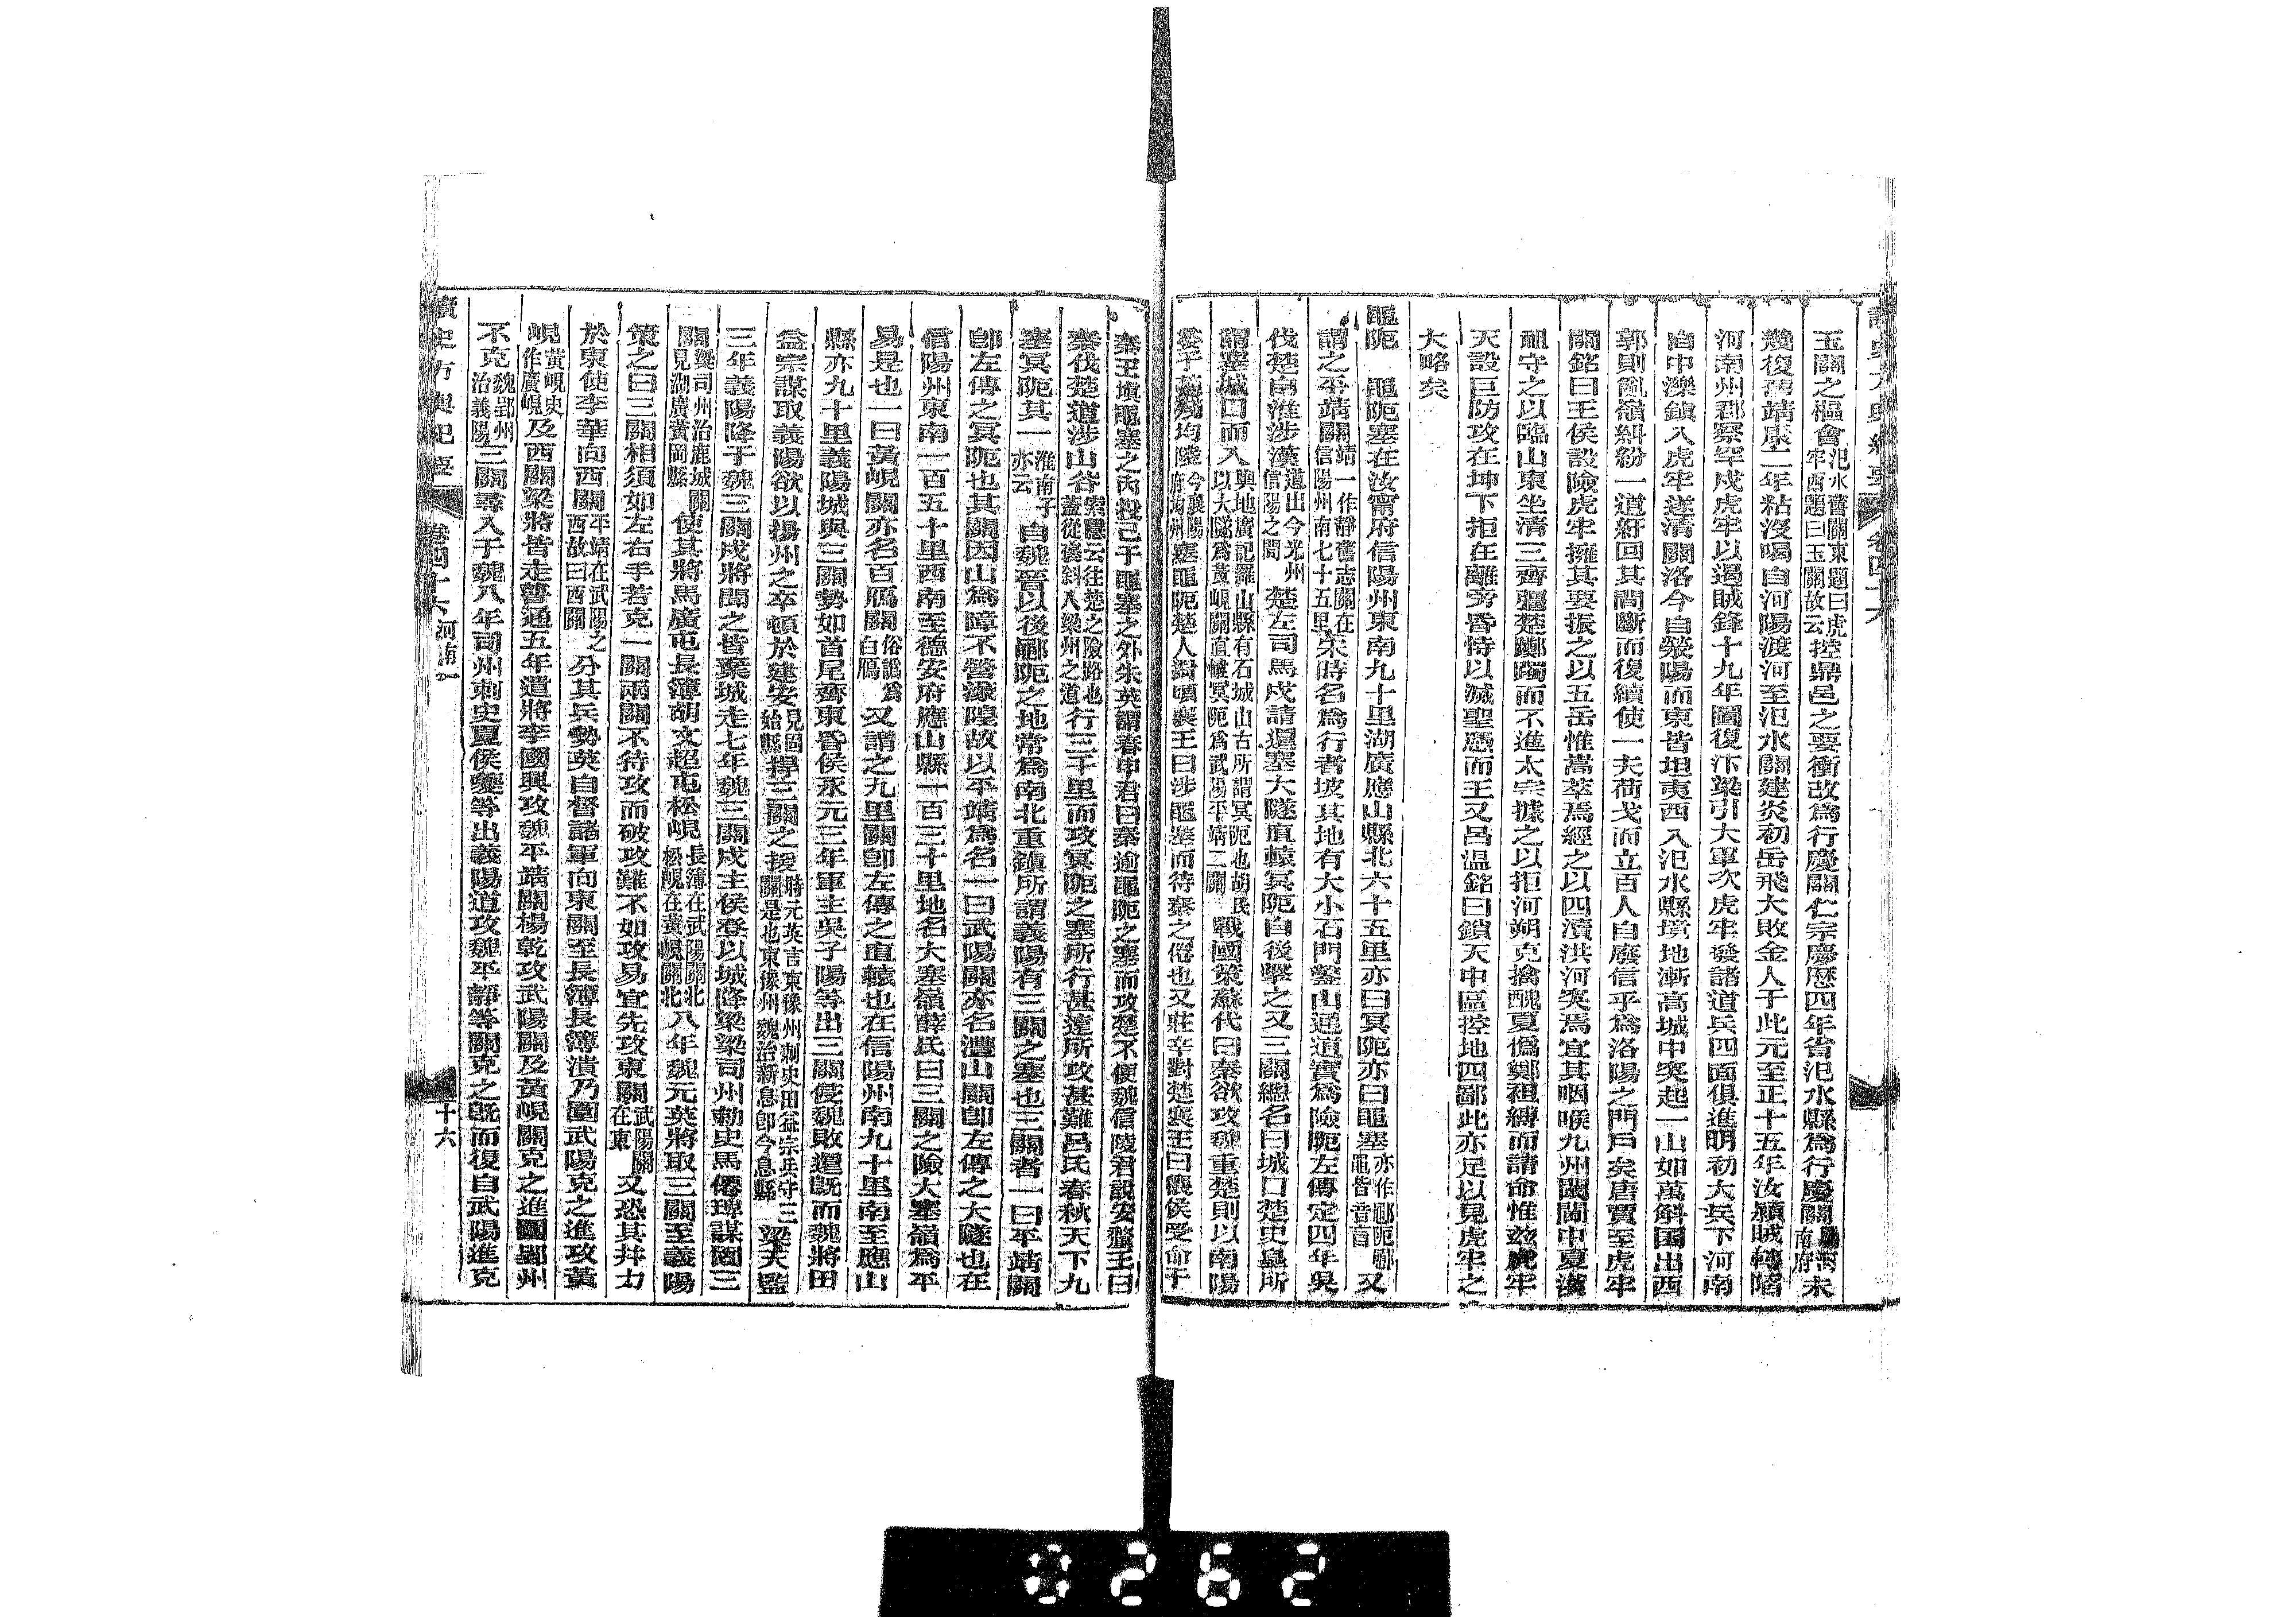 玉關之樞會汜水舊關東題曰虎牢西題曰玉關故云控鼎邑之要衝改爲行慶關仁宗慶歷四年省汜水縣爲行慶關南府未
幾復舊靖康二年粘沒喝自河陽渡河至汜水關建炎初岳飛大敗金人于此元至正十五年汝潁賊轉陷
河南州郡察罕戍虎牢以遏賊鋒十九年圖復汴梁引大軍次虎牢發諸道兵四面俱進明初大兵下河南
自中灤鎮入虎牢遂清關洛今自滎陽而東皆坦夷西入汜水縣境地漸高城中突起一山如萬斛囷出西
郭則亂嶺糾紛一道紆回其間斷而復續使一夫荷戈而立百人自廢信乎爲洛陽之門戶矣唐賈至虎牢
關銘曰王侯設險虎牢擁其要振之以五岳惟嵩萃焉經之以四瀆洪河突焉宜其咽喉九州閫閾中夏漢
祖守之以臨山東坐清三齊彊楚躑躅而不進太宗據之以拒河朔克擒醜夏僞鄭祖縛而請命惟兹虎牢
天設巨防攻在坤下拒在離旁昏恃以滅聖憑而王又呂溫銘曰鎖天中區控地四鄙此亦足以見虎牢之
大略矣
黽阨 黽阨塞在汝甯府信陽州東南九十里湖廣應山縣北六十五里亦曰冥阨亦曰黽塞亦作鄳阨鄳黽皆音盲又
謂之平靖關靖一作靜舊志關在信陽州南七十五里宋時名爲行者坡其地有大小石門鑿山通道實爲險阨左傳定四年吳
伐楚自淮涉漢道出今光州信陽之間楚左司馬戌請還塞大隧直轅冥阨自後擊之又三關總名曰城口楚史皇所
謂塞城口而入輿地廣記羅山縣有石城山古所謂冥阨也胡氏以大隧爲黃峴關直轅冥阨爲武陽平靖二關戰國策蘇代曰秦欲攻魏重楚則以南陽
委于楚殘均陵今襄陽府均州塞黽阨楚人對頃襄王曰涉黽塞而待秦之倦也又莊辛對楚襄王曰穰侯受命于
秦王塡黽塞之內投己于黽塞之外朱英謂春申君曰秦逾黽阨之塞而攻楚不便魏信陵君說安釐王曰
秦伐楚道涉山谷索隱云往楚之險路也蓋從褒斜入梁州之道行三千里而攻冥阨之塞所行甚遠所攻甚難呂氏春秋天下九
塞冥阨其一淮南子亦云自魏晉以後鄳阨之地常爲南北重鎮所謂義陽有三關之塞也三關者一曰平靖關
卽左傳之冥阨也其關因山爲障不營濠隍故以平靖爲名一曰武陽關亦名灃山關卽左傳之大隧也在
信陽州東南一百五十里西南至德安府應山縣一百三十里地名大塞嶺薛氏曰三關之險大塞嶺爲平
易是也一曰黃峴關亦名百鴈關俗譌爲白鴈又謂之九里關卽左傳之直轅也在信陽州南九十里南至應山
縣亦九十里義陽城與三關勢如首尾齊東昏侯永元三年軍主吳子陽等出三關侵魏敗還旣而魏將田
益宗謀取義陽欲以揚州之卒頓於建安見固始縣捍三關之援時元英言東豫州刺史田益宗兵守三關是也東豫州魏治新息卽今息縣梁天監
三年義陽降于魏三關戍將聞之皆棄城走七年魏三關戍主侯登以城降梁梁司州勅史馬僊琕謀圖三
關梁司州治鹿城關關見湖廣黃岡縣使其將馬廣屯長薄胡文超屯松峴長薄在武陽關北松峴在黃峴關北八年魏元英將取三關至義陽
策之曰三關相須如左右手若克一關兩關不待攻而破攻難不如攻易宜先攻東關武陽關在東又恐其并力
於東使李華向西關平靖在武陽之西故曰西關分其兵勢英自督諸軍向東關至長薄長薄潰乃圍武陽克之進攻黃
峴黃峴史作廣峴及西關梁將皆走普通五年遣將李國興攻魏平靖關楊乾攻武陽關及黃峴關克之進圍郢州
不克魏郢州治義陽三關尋入于魏八年司州刺史夏侯夔等出義陽道攻魏平靜等關克之旣而復自武陽進克
讀史方輿紀要 卷四十六 河南一 十六
0262